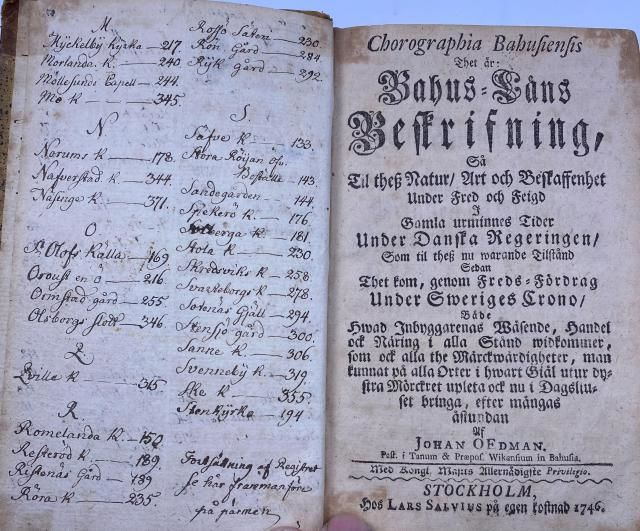 M.
Myckelby Kyrka — 217.
Morlanda. K. — 240
Mollesunds Capell — 244.
Mo K — 345.
N
Norums K — 178.
Nafverstad K — 344.
Näsinge K — 371.
O
St Olofs Källa — 169
Oroust en ö — 216
Ormstad gård — 255
Olsborgs slott — 346.
Q
Qville K — 315
R
Romelanda K — 150
Resteröd K — 189.
Ristenäs Gård — 189
Röra K — 235
Rossö Säteri — 230
Ron. Gård — 284
Ryk gård — 292
S.
Säfve K — 133.
Stora Röijan
143.
Sandegärden — 144
Spekerö K — 176
181
Stola K — 230.
Skredsviks K — 258
Svarteborgs K — 278.
Sotenäs Gjäll — 294.
Stensjö gård — 300.
Sanne K. — 306.
Svenneby K. — 319.
Ske K — 355
Stenkyrka — 194
Fortsättning af Registret
se här framanföre
på pärmen
Chorographia Bahusiensis
Thet är:
Bahus-Läns
Beskrifning,
Så
Til theß Natur/ Art och Beskaffenhet
Under Fred och Feigd
I
Gamla urminnes Tider
Under Danska Regeringen/
Som til theß nu warande Tilstånd
Sedan
Thet kom, genom Freds-Fördrag
Under Sweriges Crono/
Både
Hwad Inbyggarenas Wäsende, Handel
ock Näring i alla Stånd widkommer,
som ock alla the Märckwärdigheter, man
kunnat på alla Orter i hwart Giäl utur dy-
stra Mörckret upleta ock nu i Dagsliu-
set bringa, efter mångas
åstundan
Af
JOHAN OEDMAN.
Past. i Tanum & Præpos. Wikensium in Bahusia.
Med Kongl. Maj:ts Allernådigste Privilegio.
STOCKHOLM,
Hos LARS SALVIUS på egen kostnad 1746.